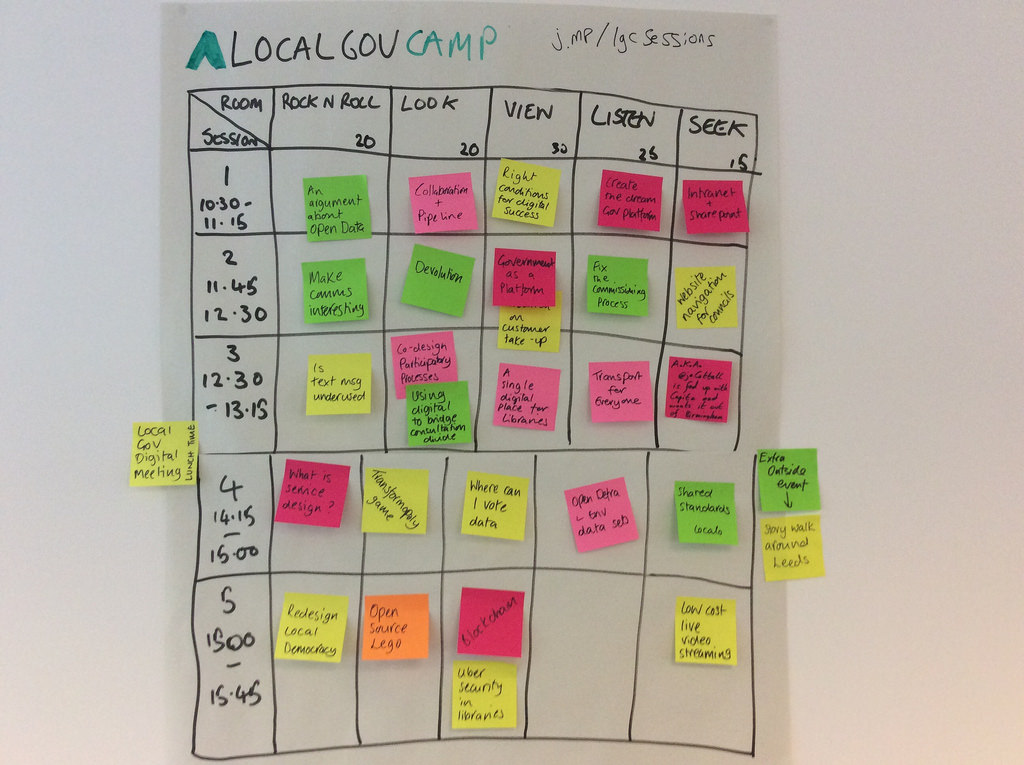 LOCALGOVCAMP
j.mp/lgcsessions
ROOM
SESSION
ROCK N ROLL
20
LOOK
20
VIEW
30
LISTEN
25
SEEK
15
1
10.30 -
11.15
An
argument
about
Open Data
Collaboration
+
Pipeline
Right
conditions
for digital
Success
Create
the dream
Gov platform
Intranet
+
Sharepoint
2
11.45
12.30
Make
comms
interesting
Devolution
Government
as a
Platform
on
customer
take-up
Fix
the
commissioning
Process
Website
navigation
for councils
3
12.30
- 13.15
Is
text msg
underused
Co-design
Participatory
Processes
Using
digital
to bridge
consultation
divide
A
single
digital
Place for
Libraries
Transport
for
Everyone
A.K.A.
is fed up with
Capita and
wants it out of
Birmingham
Local
Gov
Digital
Meeting
LUNCH TIME
4
14.15
-
15.00
What is
service
design?
Transformopoly
game
Where can
I vote
data
Open Defra
Env
data sets
Shared
Standards
Locals
Extra
Outside
event
↓
Story walk
around
Leeds
5
1500
-
15.45
Redesign
Local
Democracy
Open
Source
Lego
Blockchain
Uber
security
in
libraries
Low cost
live
video
streaming